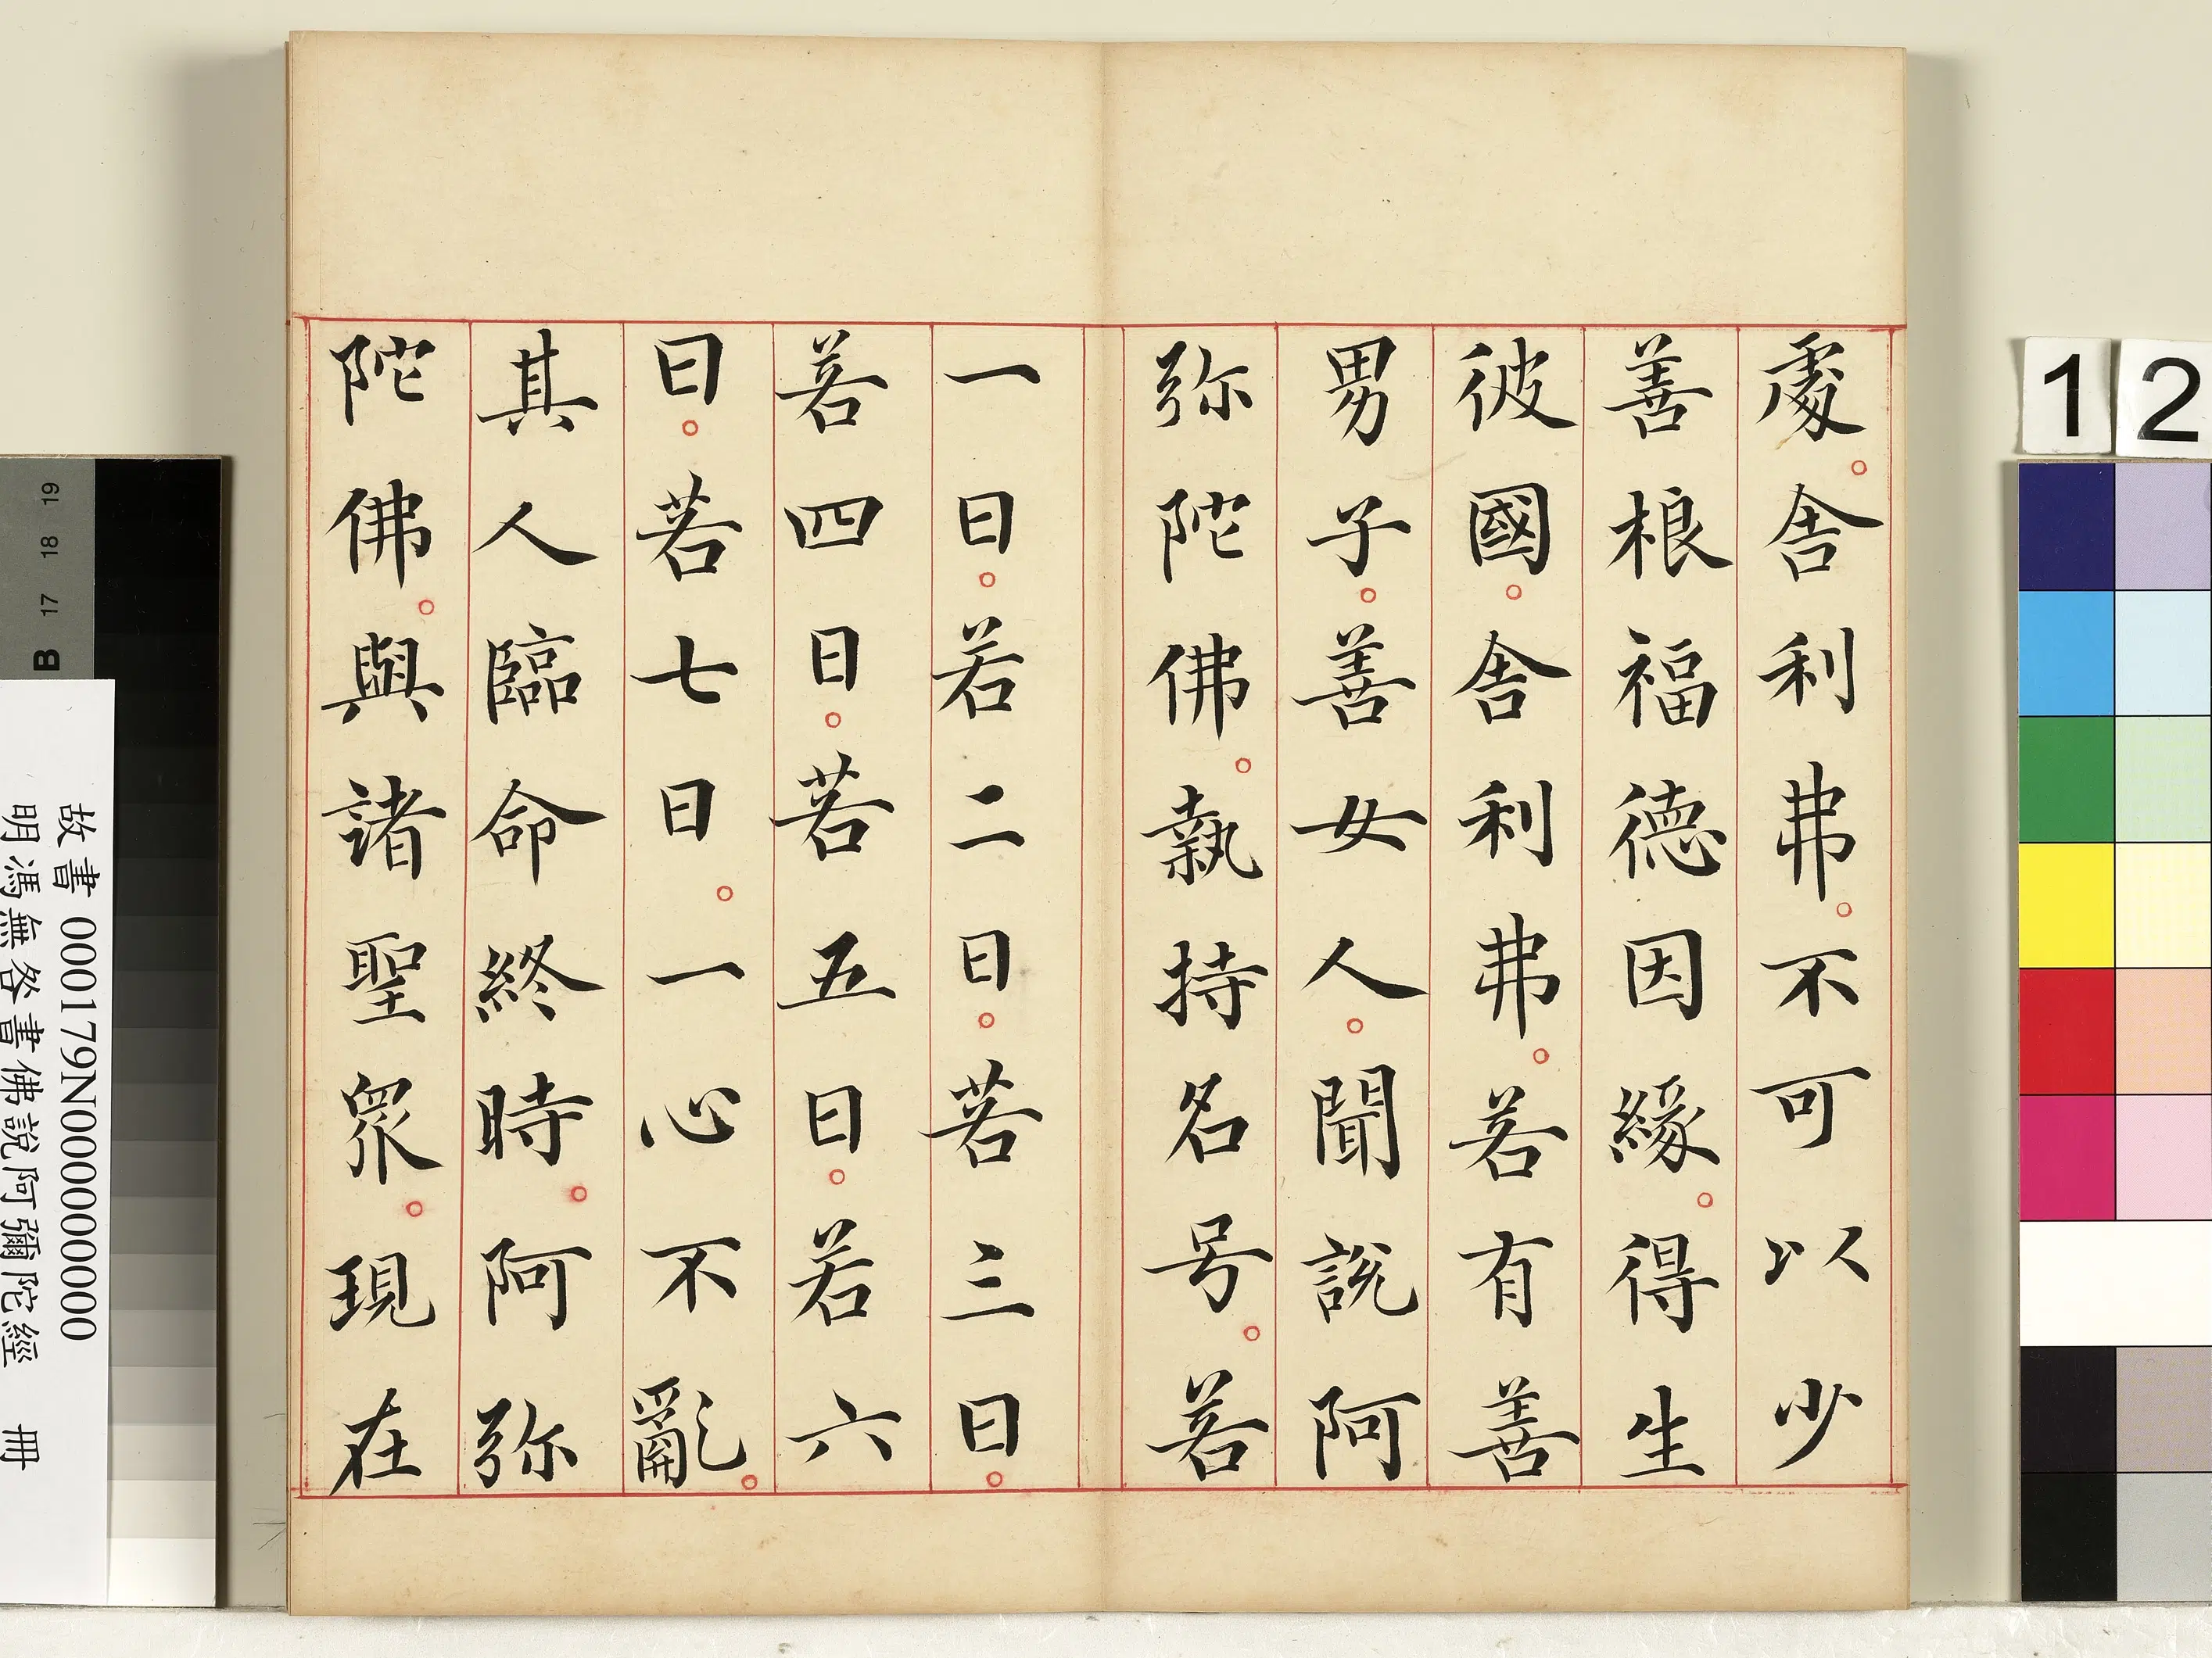 處。舍利弗。不可以少
善根福德因緣。得生
彼國。舍利弗。若有善
男子。善女人。聞說阿
弥陀佛。執持名号。若
一日。若二日。若三日。
若四日。若五日。若六
日。若七日。一心不亂。
其人臨命終時。阿弥
陀佛。與諸聖眾。現在
故書 000179N000000000
明馮無咎書佛說阿彌陀經 冊
12
19
18
17
B